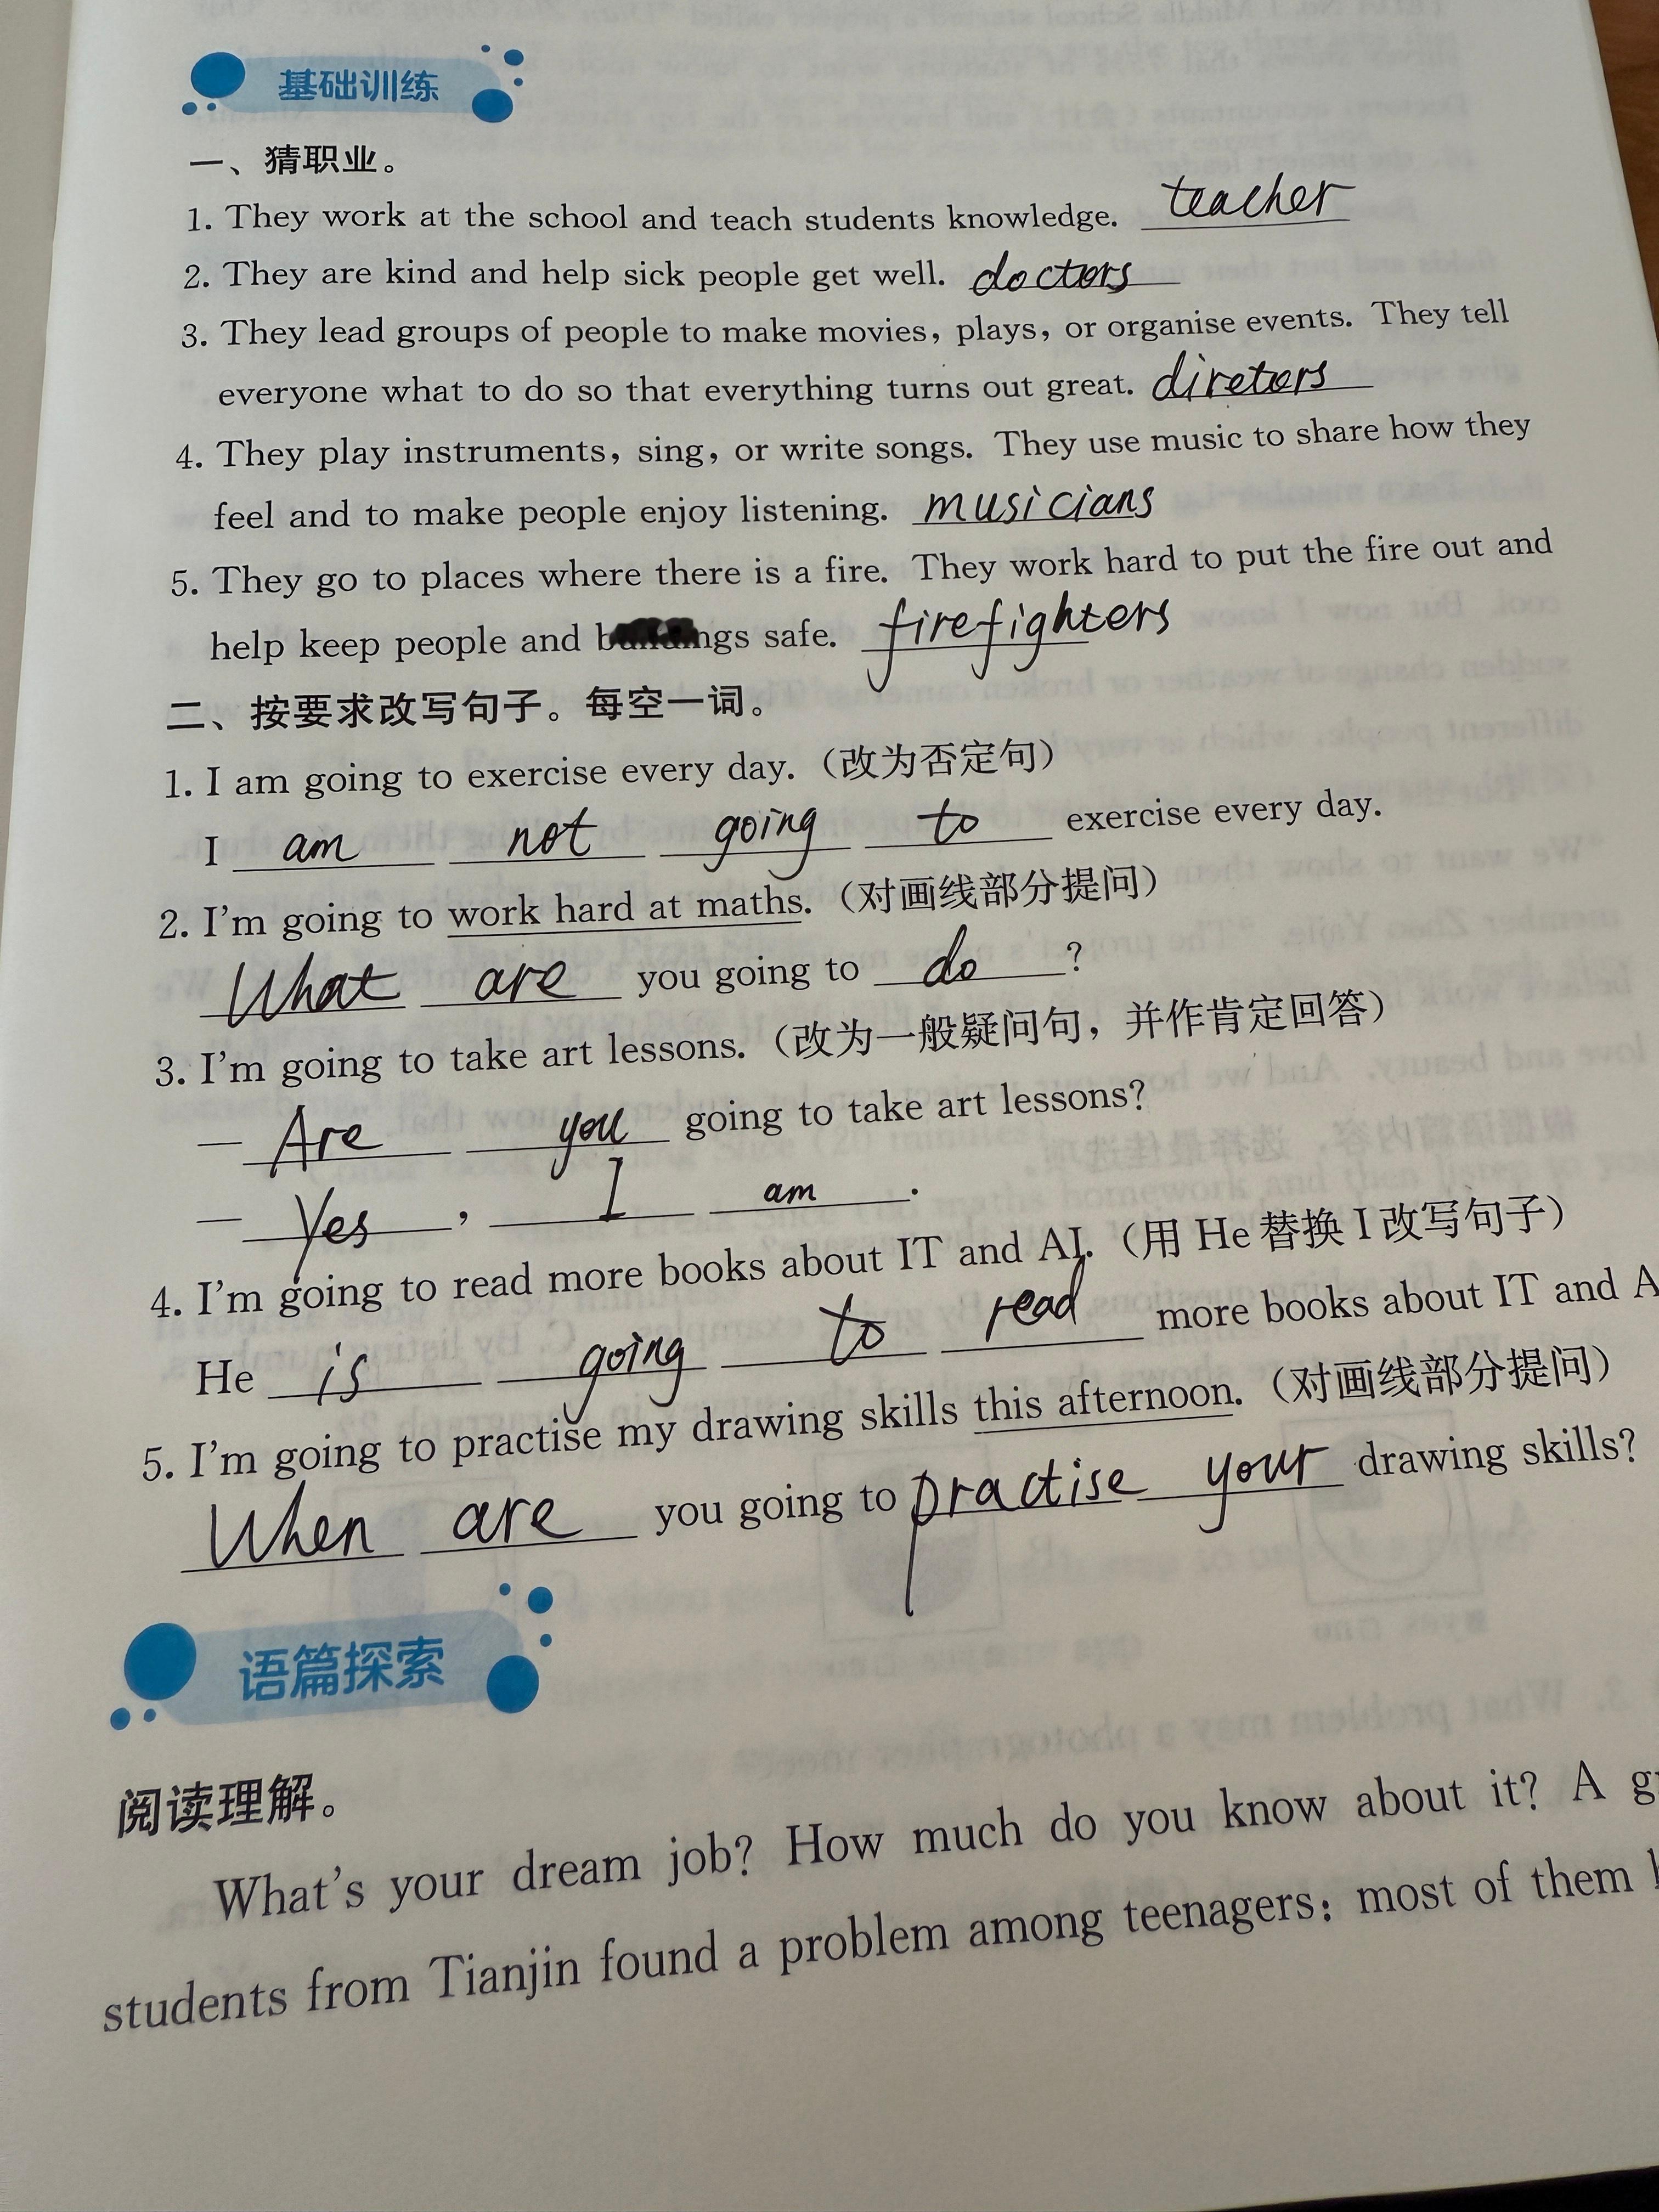 基础训练
一、猜职业。
1. They work at the school and teach students knowledge. teacher
2. They are kind and help sick people get well. doctors
3. They lead groups of people to make movies, plays, or organise events. They tell
everyone what to do so that everything turns out great. diretors
4. They play instruments, sing, or write songs. They use music to share how they
feel and to make people enjoy listening. musicians
5. They go to places where there is a fire. They work hard to put the fire out and
help keep people and safe. firefighters
二、按要求改写句子。每空一词。
1. I am going to exercise every day.（改为否定句）
I am not going to exercise every day.
2. I'm going to work hard at maths.（对画线部分提问）
What are you going to do?
3. I'm going to take art lessons.（改为一般疑问句，并作肯定回答）
— Are you going to take art lessons?
— Yes, I am.
4. I'm going to read more books about IT and AI.（用 He 替换 I 改写句子）
He is going to read more books about IT and A
5. I'm going to practise my drawing skills this afternoon.（对画线部分提问）
When are you going to practise your drawing skills?
语篇探索
阅读理解。
What's your dream job? How much do you know about it? A
students from Tianjin found a problem among teenagers: most of them